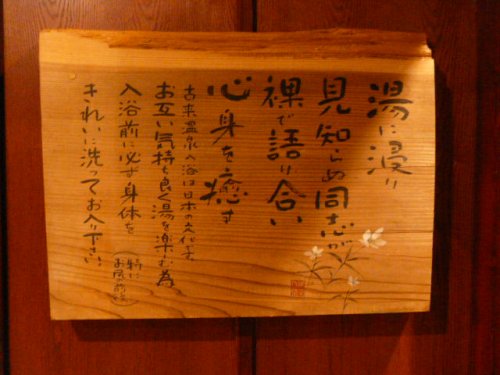 湯に浸り
見知らぬ同志が
裸で語り合い
心身を癒す
古来温泉入浴は日本の文化です
お互い気持ち良く湯を楽しむ為
入浴前に必ず身体を
(特にお尻、前を)
きれいに洗ってお入り下さい